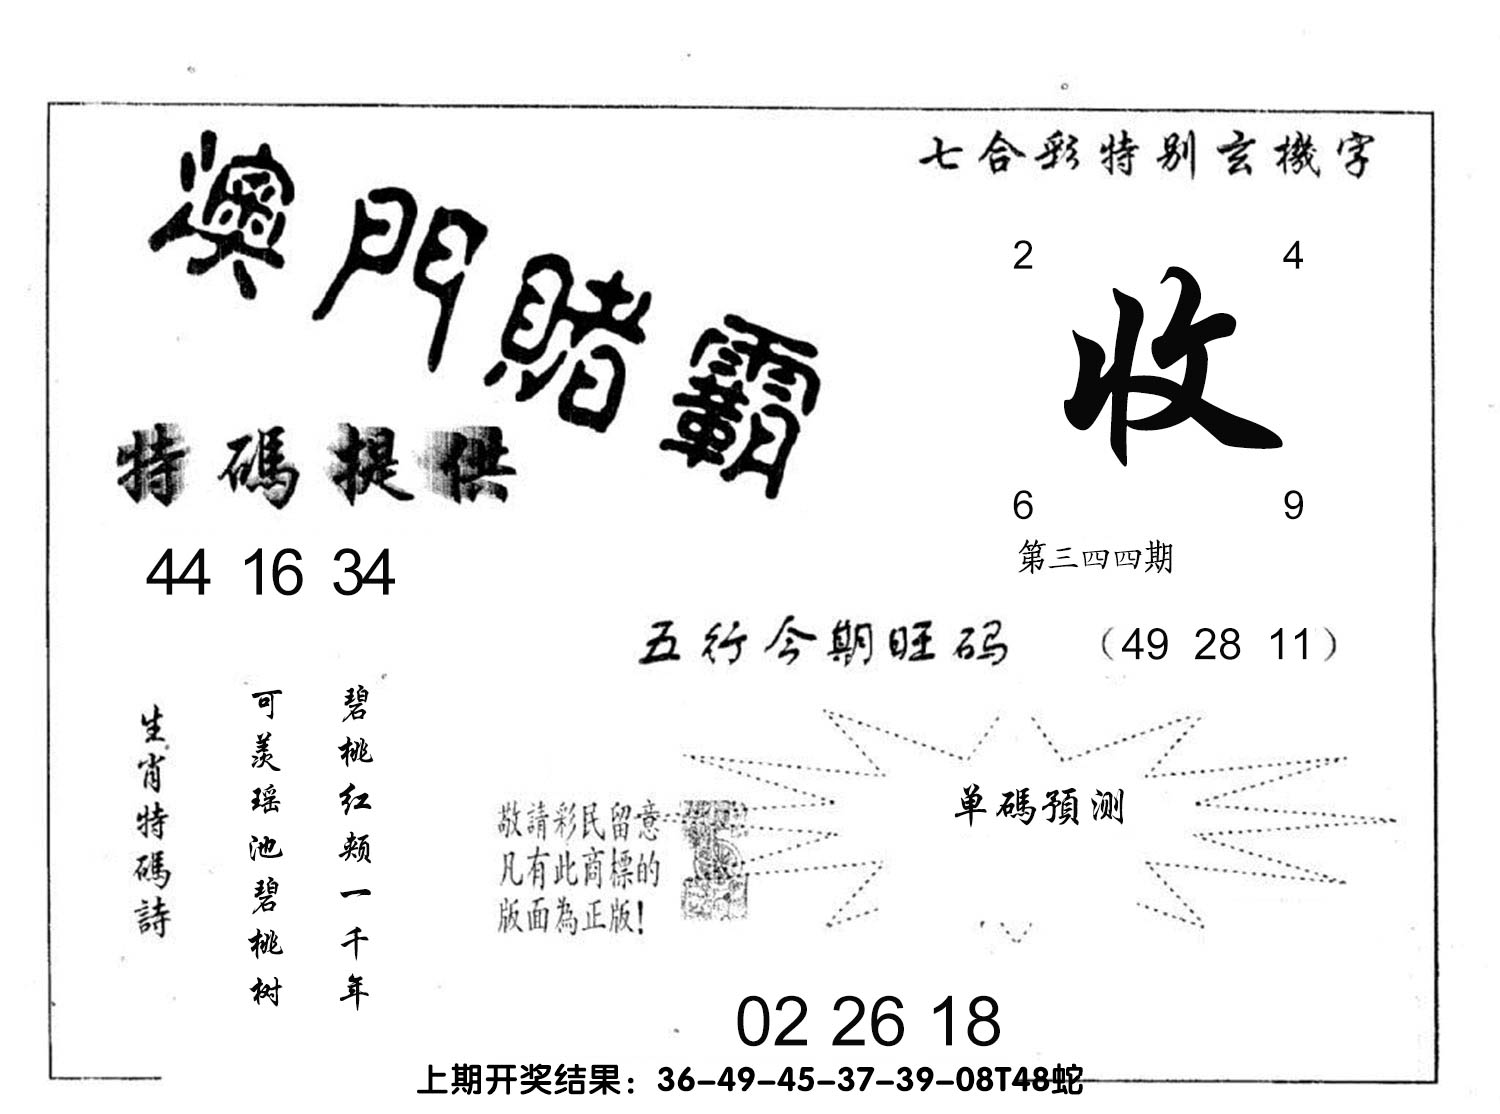 澳門賭霸
七合彩特别玄機字
2 4
收
6 9
第三四四期
特碼提供
44 16 34
五行今期旺码 （49 28 11）
生肖特碼詩
可羡瑶池碧桃树
碧桃红颊一千年
敬請彩民留意
凡有此商標的
版面為正版!
单碼預测
02 26 18
上期开奖结果：36-49-45-37-39-08T48蛇